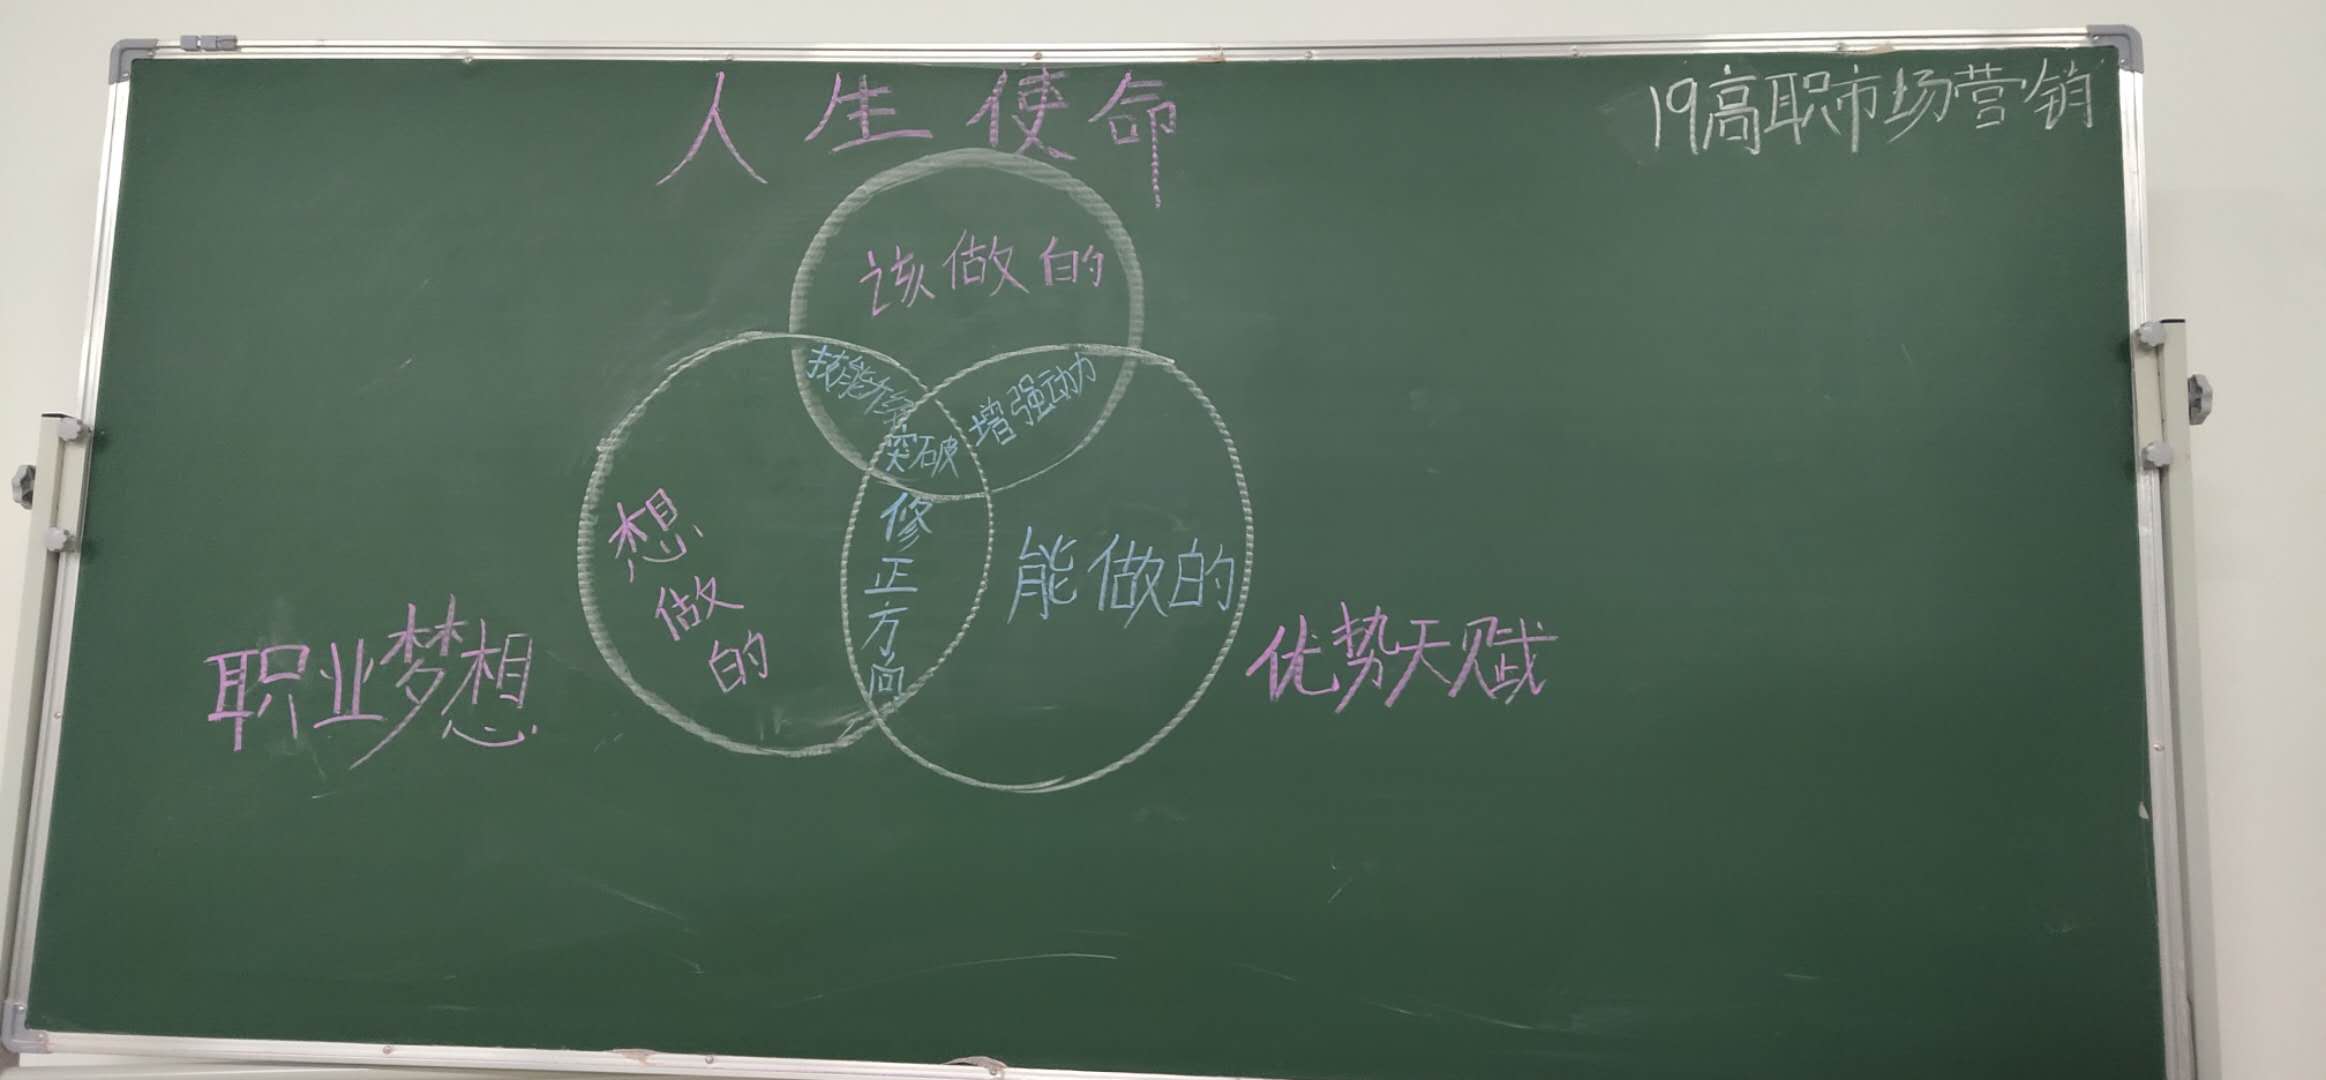 人生使命
19高职市场营销
该做的
技能升级
增强动力
突破
想做的
修正方向
能做的
职业梦想
优势天赋